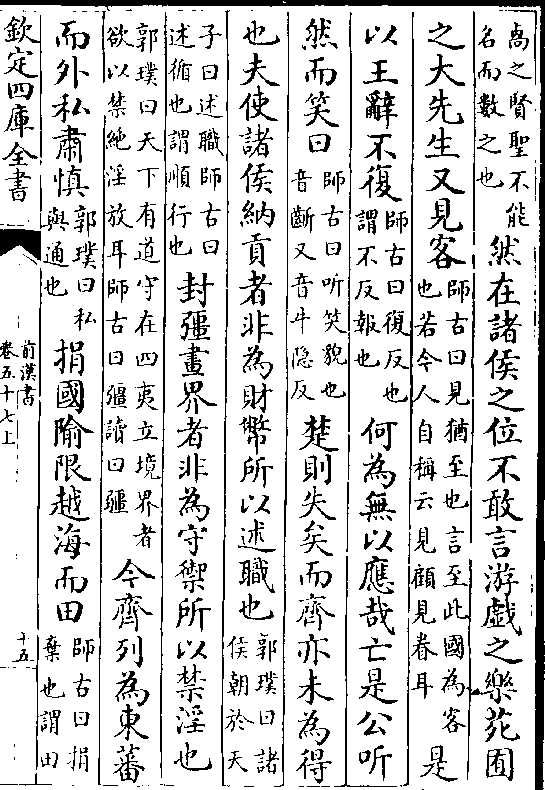 卨之賢聖不能名而數之也然在諸侯之位不敢言游戲之樂苑囿
之大先生又見客師古曰見猶至也言至此國為客也若今人自稱云見顧見眷耳是
以王辭不復師古曰復反也謂不反報也何為無以應哉亡是公听
然而笑曰師古曰听笑貌也音齗又音牛隠反楚則失矣而齊亦未為得
也夫使諸侯納貢者非為財幣所以述職也郭璞曰諸侯朝於天
子曰述職師古曰述循也謂順行也封疆畫界者非為守禦所以禁淫也
郭璞曰天下有道守在四夷立境界者欲以禁絶淫放耳師古曰彊讀曰疆今齊列為東蕃
而外私肅慎郭璞曰私與通也捐國隃限越海而田師古曰捐棄也謂田
欽定四庫全書
前漢書
卷五十七上
十五